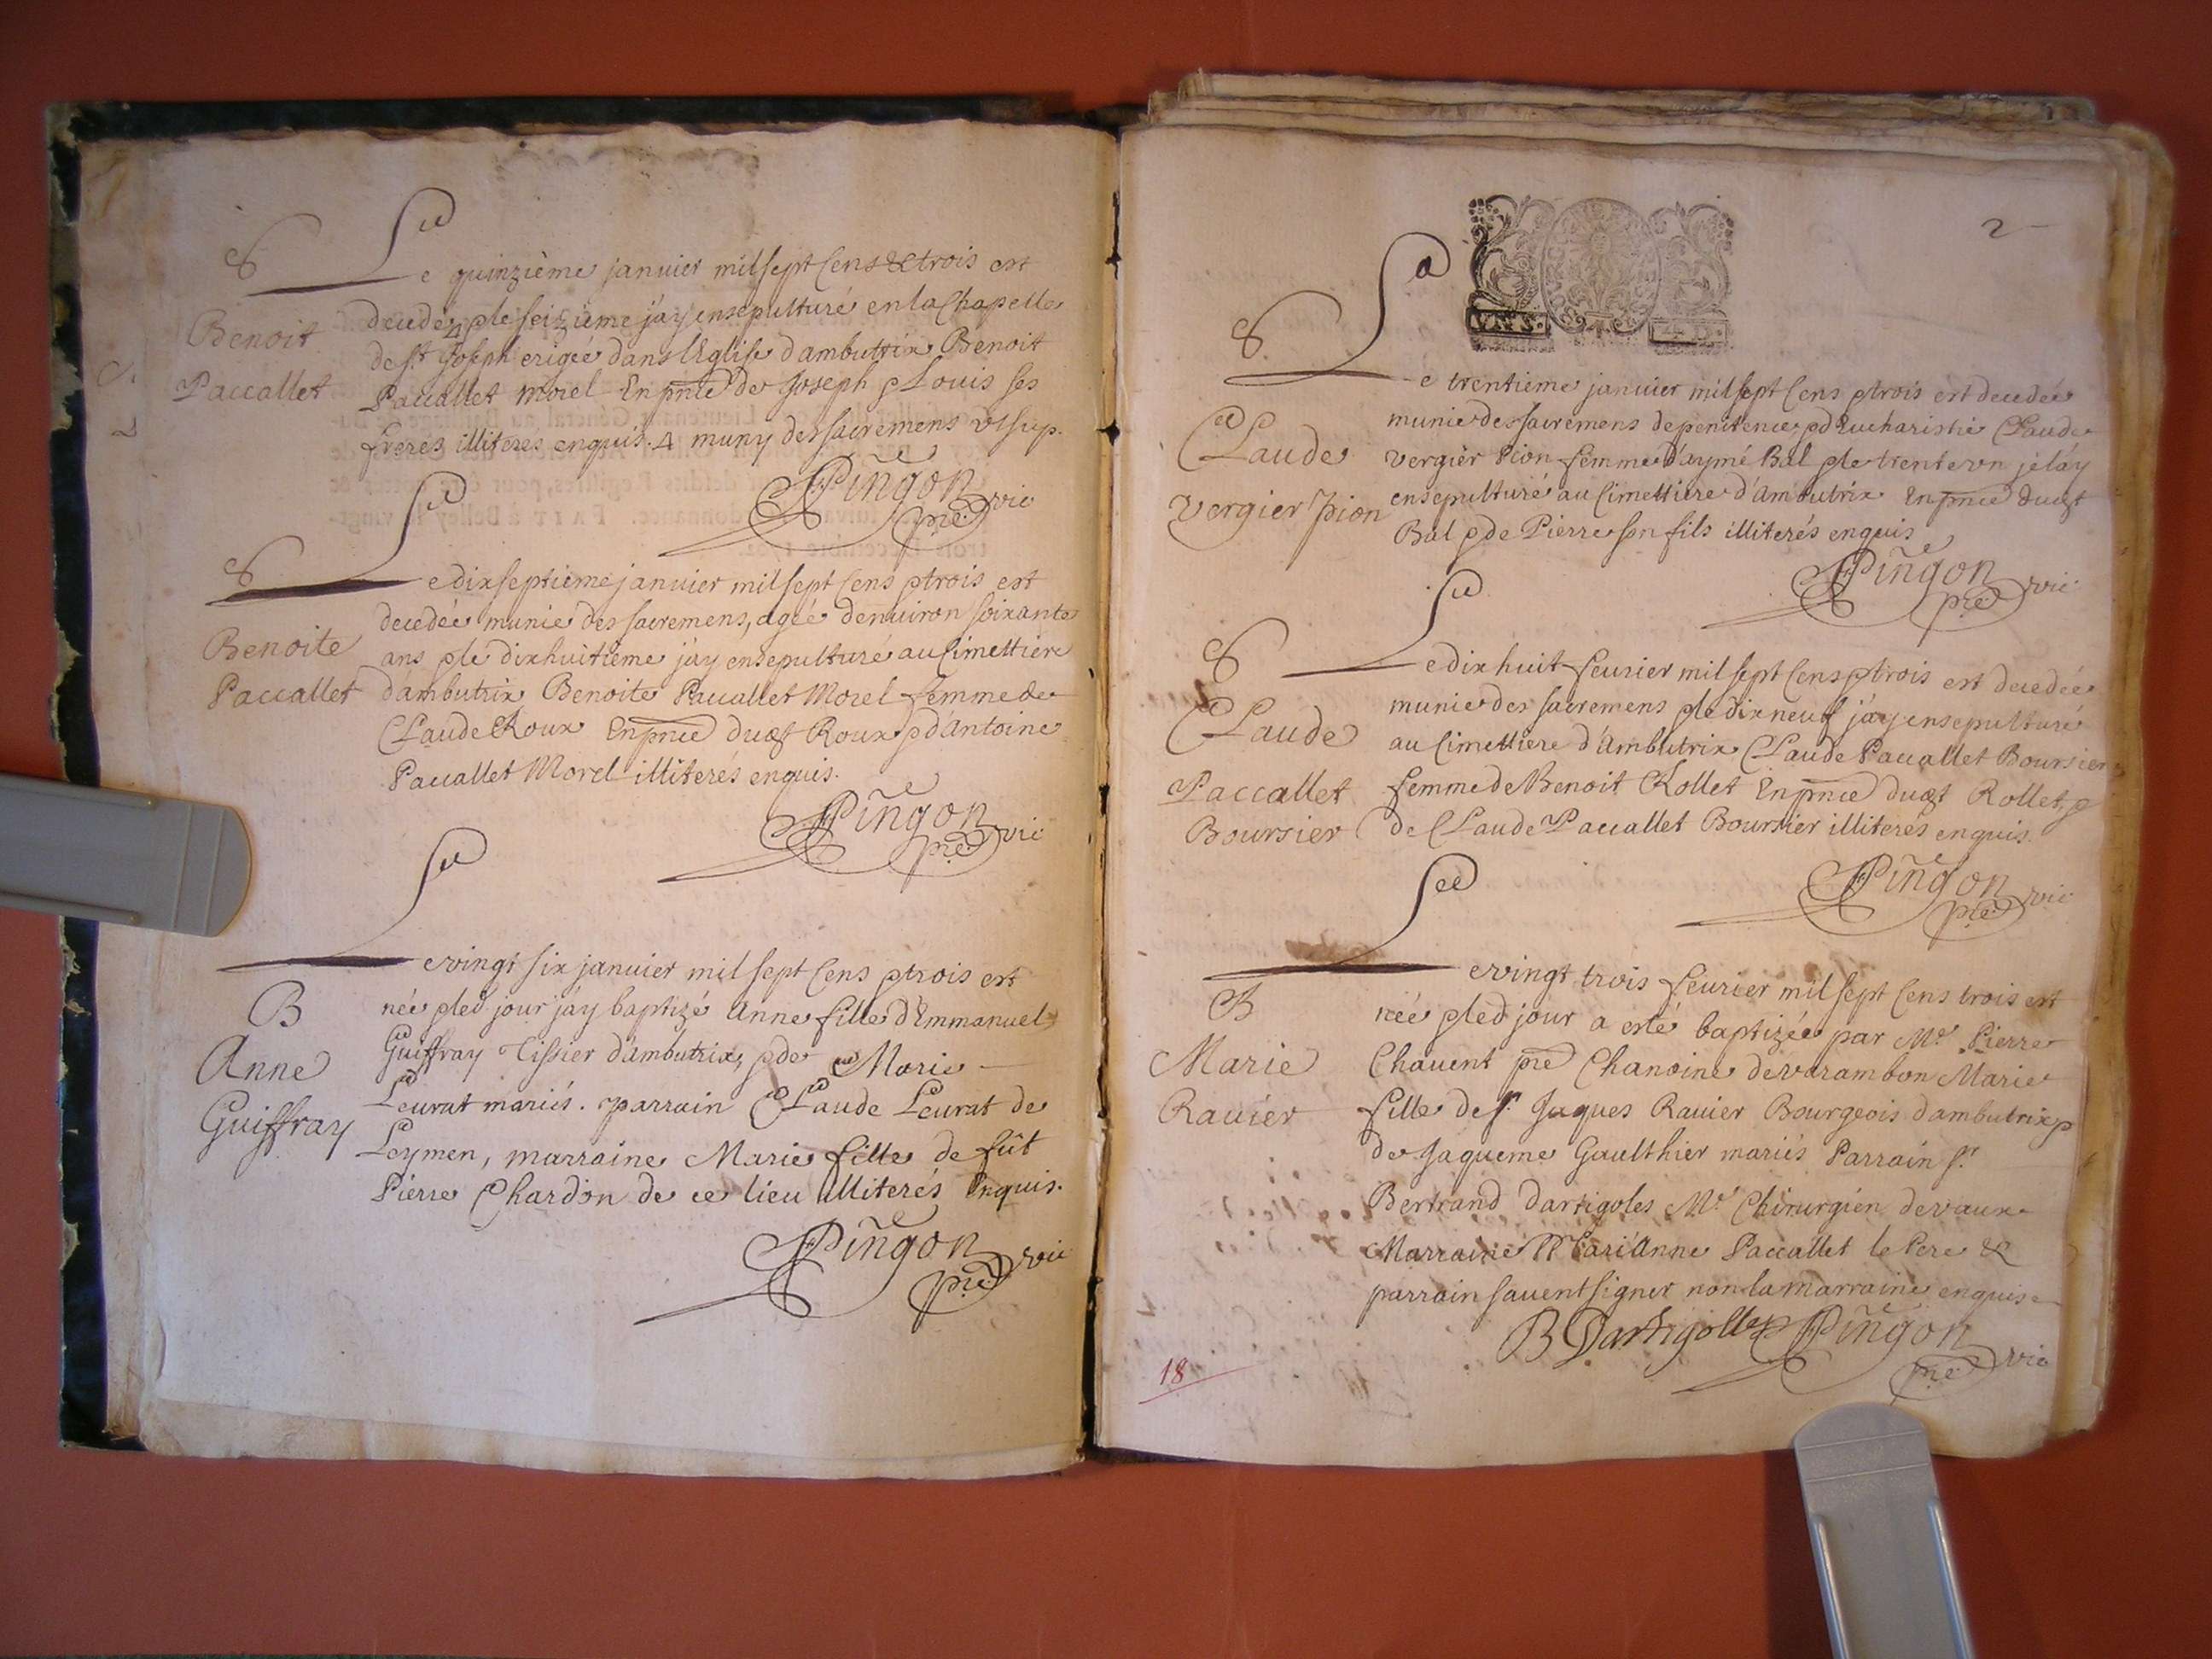 S
Benoit
Paccallet
Le quinzième januier mil sept cens & trois est
decedé & le seizieme j'ay ensepulturé en la Chapelle
de st Joseph erigée dans l'Eglise d'ambutrix Benoit
Paccallet Morel En pnce de Joseph & Louis ses
freres illiteres enquis. muny des sacremens vt sup.
Pingon pre vic
S
Benoite
Paccallet
Le dixseptieme januier mil sept cens & trois est
decedée munie des sacremens, agée d'enuiron soixante
ans & le dixhuitième j'ay ensepulturé au Cimettiere
d'ambutrix Benoite Paccallet Morel femme de
Claude Roux En pnce dudt Roux & d'Antoine
Paccallet Morel illiterés enquis.
Pingon pre vic
B
Anne
Guiffray
Le vingt six januier mil sept cens & trois est
née & led jour j'ay baptizé Anne fille d'Emmanuel
Guiffray Tissier d'ambutrix, & de Marie
Leurat mariés. parrain Claude Leurat de
Leymen, marraine Marie fille de fût
Pierre Chardon de ce lieu illiterés Enquis.
Pingon pre vic
2
S.
Claude
Vergier Pion
Le trentieme januier mil sept cens & trois est decedée
munie des sacremens de penitence & d'Eucharistie Claude
Vergier Pion femme d'aymé Bal & le trente vn je l'ay
ensepulturé au Cimettiere d'Ambutrix En pnce dudt
Bal & de Pierre son fils illiterés enquis
Pingon pre vic
S
Claude
Paccallet
Boursier
Le dix huit feurier mil sept cens & trois est decedée
munie des sacremens & le dix neuf j'ay ensepulturé
au Cimettiere d'Ambutrix Claude Paccallet Boursier
femme de Benoit Rollet En pnce dudt Rollet, &
de Claude Paccallet Boursier illiterés enquis.
Pingon pre vic
B
Marie
Rauier
Le vingt trois feurier mil sept cens trois est
née & led jour a esté baptizée par Mre Pierre
Chauent pre Chanoine de varambon Marie
fille de sr Jaques Rauier Bourgeois d'ambutrix &
de Jaqueme Gaulthier mariés Parrain sr
Bertrand Dartigoles Mre Chirurgien de vaux
Marraine Mari'Anne Paccallet le Pere &
parrain sauent signer non la marraine enquise
B Dartigolles Pingon pre vic
18